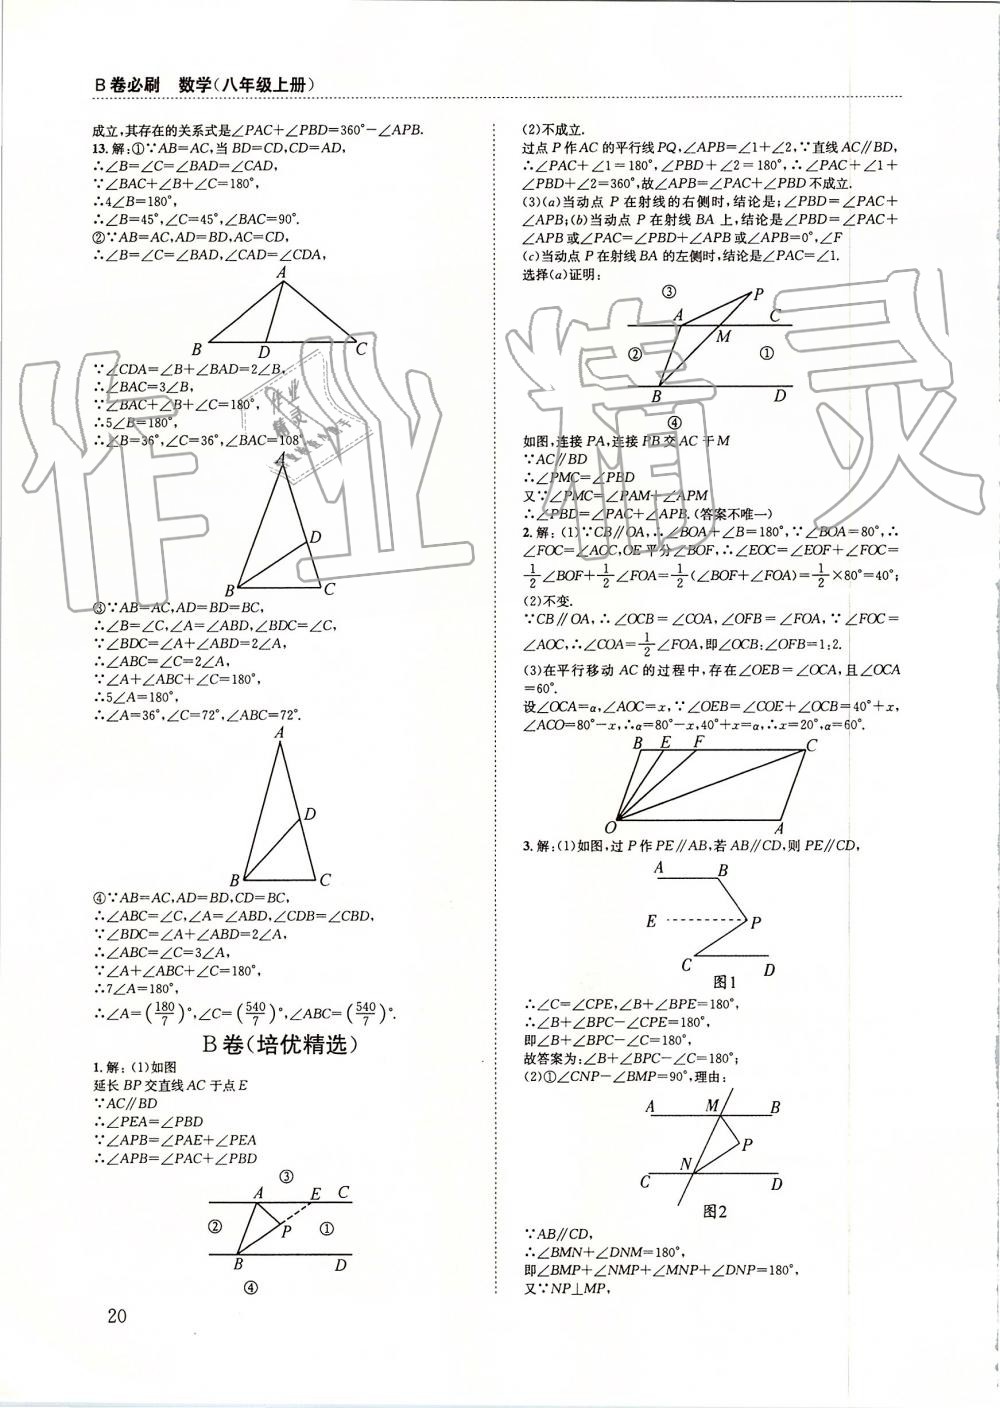 B卷必刷 数学(八年级上册)
成立,其存在的关系式是∠PAC+∠PBD=360°-∠APB.
13.解:①∵AB=AC,当BD=CD,CD=AD,
∴∠B=∠C=∠BAD=∠CAD,
∵∠BAC+∠B+∠C=180°,
∴4∠B=180°,
∴∠B=45°,∠C=45°,∠BAC=90°.
②∵AB=AC,AD=BD,AC=CD,
∴∠B=∠C=∠BAD,∠CAD=∠CDA,
A
B D C
∵∠CDA=∠B+∠BAD=2∠B,
∴∠BAC=3∠B,
∵∠BAC+∠B+∠C=180°,
∴5∠B=180°,
∴∠B=36°,∠C=36°,∠BAC=108°
A
D
B C
③∵AB=AC,AD=BD=BC,
∴∠B=∠C,∠A=∠ABD,∠BDC=∠C,
∵∠BDC=∠A+∠ABD=2∠A,
∴∠ABC=∠C=2∠A,
∵∠A+∠ABC+∠C=180°,
∴5∠A=180°,
∴∠A=36°,∠C=72°,∠ABC=72°.
A
D
B C
④∵AB=AC,AD=BD,CD=BC,
∴∠ABC=∠C,∠A=∠ABD,∠CDB=∠CBD,
∵∠BDC=∠A+∠ABD=2∠A,
∴∠ABC=∠C=3∠A,
∵∠A+∠ABC+∠C=180°,
∴7∠A=180°,
∴∠A=(180/7)°,∠C=(540/7)°,∠ABC=(540/7)°.
B卷(培优精选)
1.解:(1)如图
延长BP交直线AC于点E
∵AC∥BD
∴∠PEA=∠PBD
∵∠APB=∠PAE+∠PEA
∴∠APB=∠PAC+∠PBD
③
A E C
② P ①
B D
④
20
(2)不成立.
过点P作AC的平行线PQ,∠APB=∠1+∠2,∵直线AC∥BD,
∴∠PAC+∠1=180°,∠PBD+∠2=180°,∴∠PAC+∠1+
∠PBD+∠2=360°,故∠APB=∠PAC+∠PBD不成立.
(3)(a)当动点P在射线的右侧时,结论是;∠PBD=∠PAC+
∠APB;(b)当动点P在射线BA上,结论是∠PBD=∠PAC+
∠APB或∠PAC=∠PBD+∠APB或∠APB=0°,∠F
(c)当动点P在射线BA的左侧时,结论是∠PAC=∠1.
选择(a)证明:
③ P
A C
M
② ①
B D
④
如图,连接PA,连接PB交AC于M
∵AC∥BD
∴∠PMC=∠PBD
又∵∠PMC=∠PAM+∠APM
∴∠PBD=∠PAC+∠APB.(答案不唯一)
2.解:(1)∵CB∥OA,∴∠BOA+∠B=180°,∵∠BOA=80°,∴
∠FOC=∠AOC,OE平分∠BOF,∴∠EOC=∠EOF+∠FOC=
1/2∠BOF+1/2∠FOA=1/2(∠BOF+∠FOA)=1/2×80°=40°;
(2)不变.
∵CB∥OA,∴∠OCB=∠COA,∠OFB=∠FOA,∵∠FOC=
∠AOC,∴∠COA=1/2∠FOA,即∠OCB:∠OFB=1:2.
(3)在平行移动AC的过程中,存在∠OEB=∠OCA,且∠OCA
=60°.
设∠OCA=α,∠AOC=x,∵∠OEB=∠COE+∠OCB=40°+x,
∠ACO=80°-x,∴α=80°-x,40°+x=α,∴x=20°,α=60°.
B E F C
O A
3.解:(1)如图,过P作PE∥AB,若AB∥CD,则PE∥CD,
A B
E P
C D
图1
∴∠C=∠CPE,∠B+∠BPE=180°,
∴∠B+∠BPC-∠CPE=180°,
即∠B+∠BPC-∠C=180°,
故答案为:∠B+∠BPC-∠C=180°;
(2)①∠CNP-∠BMP=90°,理由:
A M B
P
C N D
图2
∵AB∥CD,
∴∠BMN+∠DNM=180°,
即∠BMP+∠NMP+∠MNP+∠DNP=180°,
又∵NP⊥MP,
作业精灵